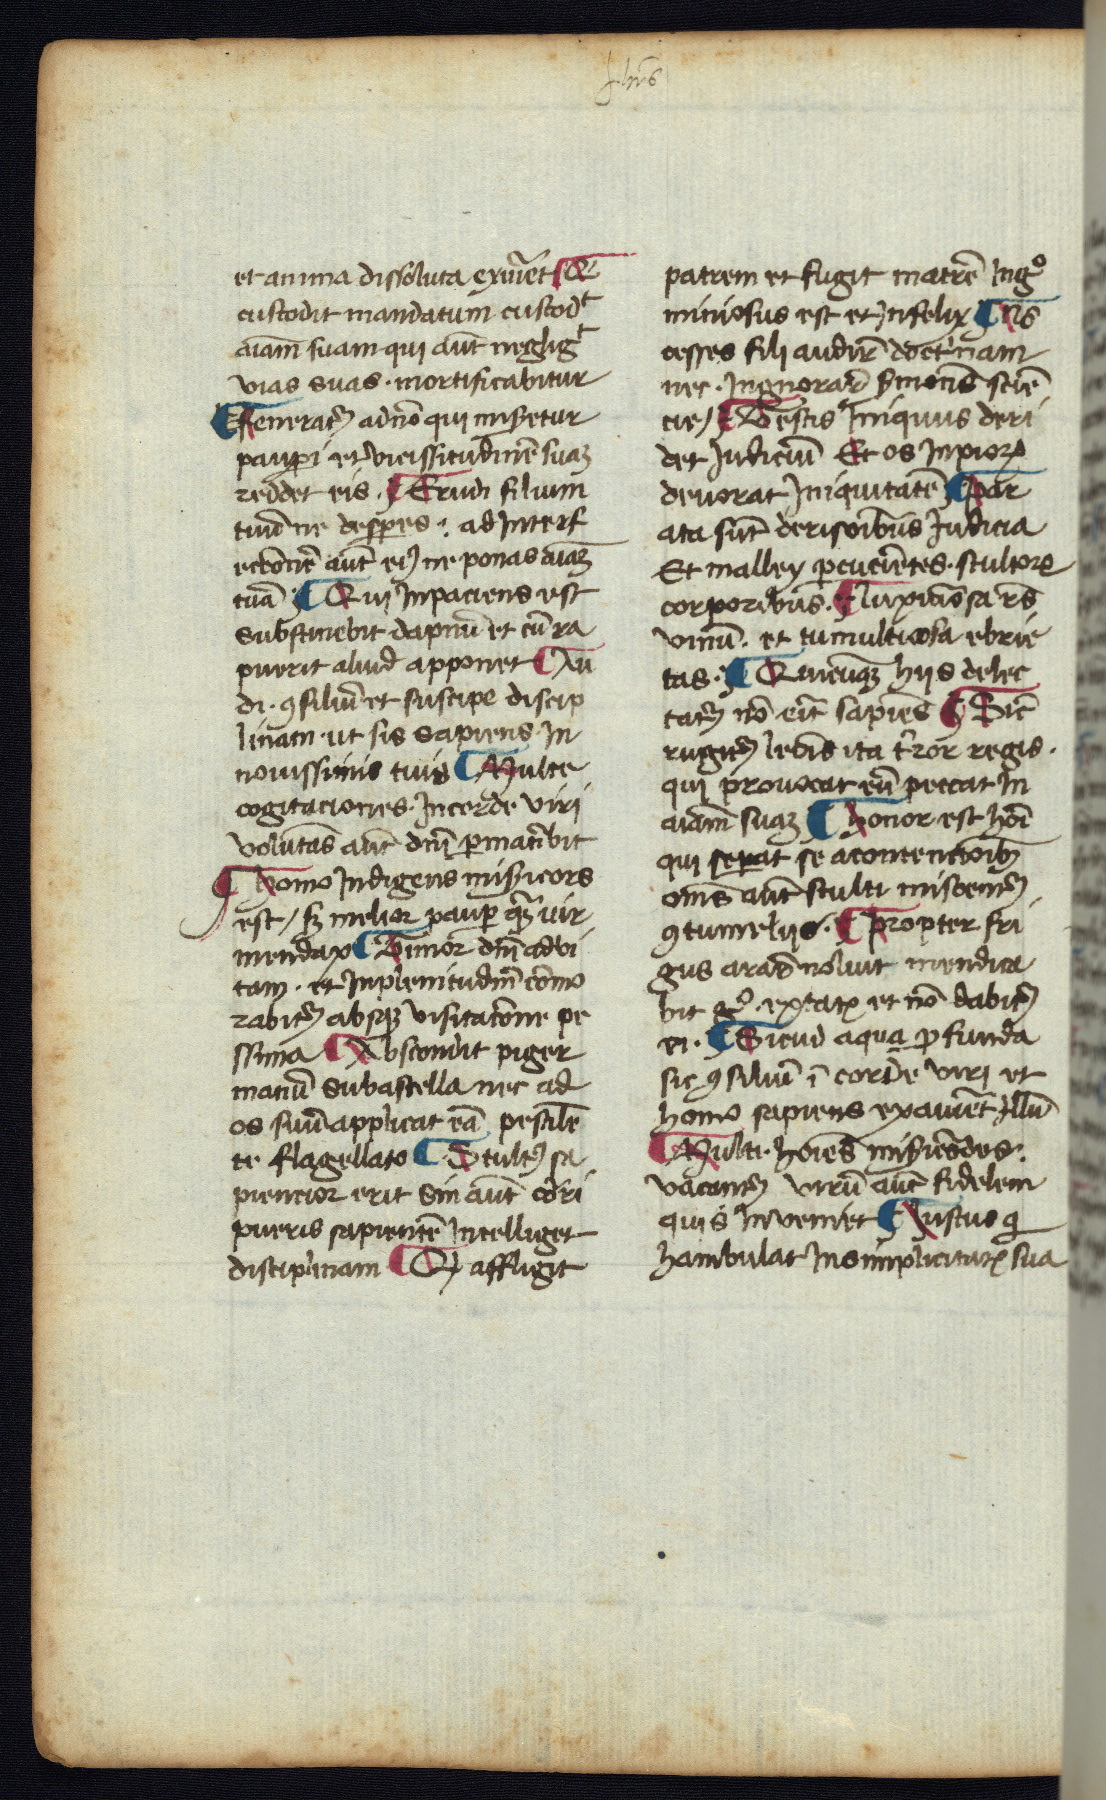 jhūs
et anima dissoluta exuriet ¶ Qi
custodit mandatum custodᵗ
aīam suam qui aūt negligᵗ
vias suas · mortificabitur
¶ Feneratᷣ adn̄o qui miẜetur
paupi et vicissitudinē suaꝫ
reddet eis · ¶ Erudi filium
tuū ne desperes : ad Interf
ectōnē aūt eiꝰ ne ponas aīaꝫ
tuā ¶ Quj Inpaciens est
substinebit dapnū et cū ra
puerit aliud apponet ¶ Au
di · ꝯsiliū et suscipe discip
linam · ut sis sapiens · In
nouissimis tuis ¶ Multe
cogitaciones · Incorde virj
volūtas aūt dn̄j ꝑmanēbit
¶ Homo Indigens miẜicors
est / sꝫ melior paupꝛ qᷓꝫ uir
mendax ¶ Timor dn̄j advi
tam · et Inplenitudīe cōmo
rabitᷣ absqꝫ visitatōne pe
ssima ¶ Abscondit piger
manū subascella nec ad
os suū applicat eā pestilē
te flagellato ¶ Stultꝰ sa
piencior erit Sin aūt cōri
pueris sapientē Intelliget
disciplinam ¶ Qi affligit
patrem et fugit matrē Ingᵒ
miniosus est et Infelix ¶ Nō
cesses fili audirē doctrīnam
nec · Ingnorarē ẜmonēs sciē
cie / ¶ Testis Iniquus deri
det Judiciū Et os Inpioꝝ
deuorat Iniquitatē ¶ Par
ata sūt derisoribus Judicia
Et mallej ꝑcucientes · stultoꝝ
corporibus · ¶ Luxuriosa rēs
vinū · et tumultuosa ebrie
tas · ¶ Quicūqꝫ hijs delec
tatᷣ nō erit sapiens ¶ Sic̄
rugitꝰ leōis ita tᷣror regis ·
quj prouocat eū peccat In
aīam suaꝫ ¶ Honor est hōi
quj separat se acontencioībꝫ
om̄s aūt stulti miscentᷣ
ꝯtumelijs · ¶ Propter fri
gus ararē noluit mendica
bit gᵒ · estate et nō dabitᷣ
ei · ¶ Sicud aqua ꝓfunda
sic ꝯsiliū ī corde virj et
homo sapiens exauriet Illud
¶ Multi · hoīes miẜicōdes ·
vacantᷣ virū aūt fidelem
quis Inveniet ¶ Iustus q̄
hambulat Insimplicitate sua